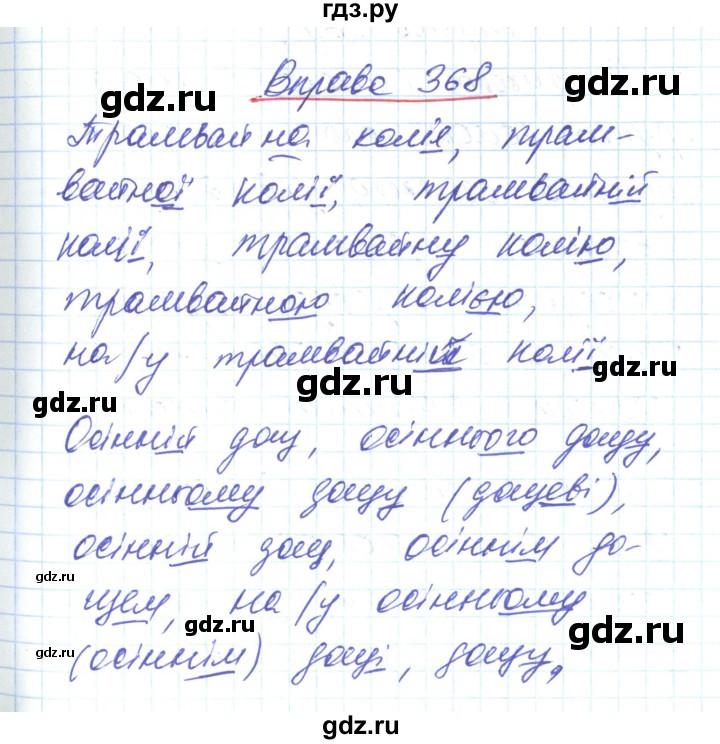 гдз.ру
Вправа 368
Трамвайна колія, трам-
вайної колії, трамвайній
колії, трамвайну колію,
трамвайною колією,
на/у трамвайній колії
Осінній дощ, осіннього дощу,
осінньому дощу (дощеві),
осінній дощ, осіннім до-
щем, на/у осінньому
(осіннім) дощі, дощу,
gdz.ru
gdz.ru
gdz.ru
gdz.ru
gdz.ru
gdz.ru
gdz.ru
gdz.ru
gdz.ru
gdz.ru
gdz.ru
gdz.ru